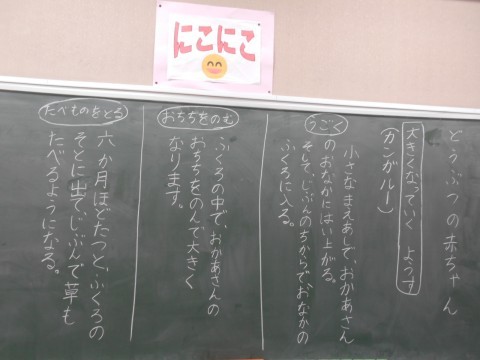 にこにこ
どうぶつの赤ちゃん
大きくなっていく ようす
(カンガルー)
うごく
小さなまえあしで、おかあさん
のおなかにはい上がる。
そして、じぶんのちからでおなかの
ふくろに入る。
おちちをのむ
ふくろの中で、おかあさんの
おちちをのんで大きく
なります。
たべものをとる
六か月ほどたつと、ふくろの
そとに出て、じぶんで草も
たべるようになる。